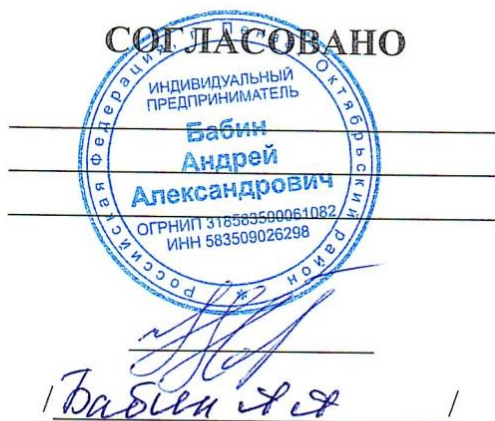 СОГЛАСОВАНО
Российская Федерация г. Пенза Октябрьский район
ИНДИВИДУАЛЬНЫЙ
ПРЕДПРИНИМАТЕЛЬ
Бабин
Андрей
Александрович
ОГРНИП 318583500061082
ИНН 583509026298
*
/ Бабин А А /